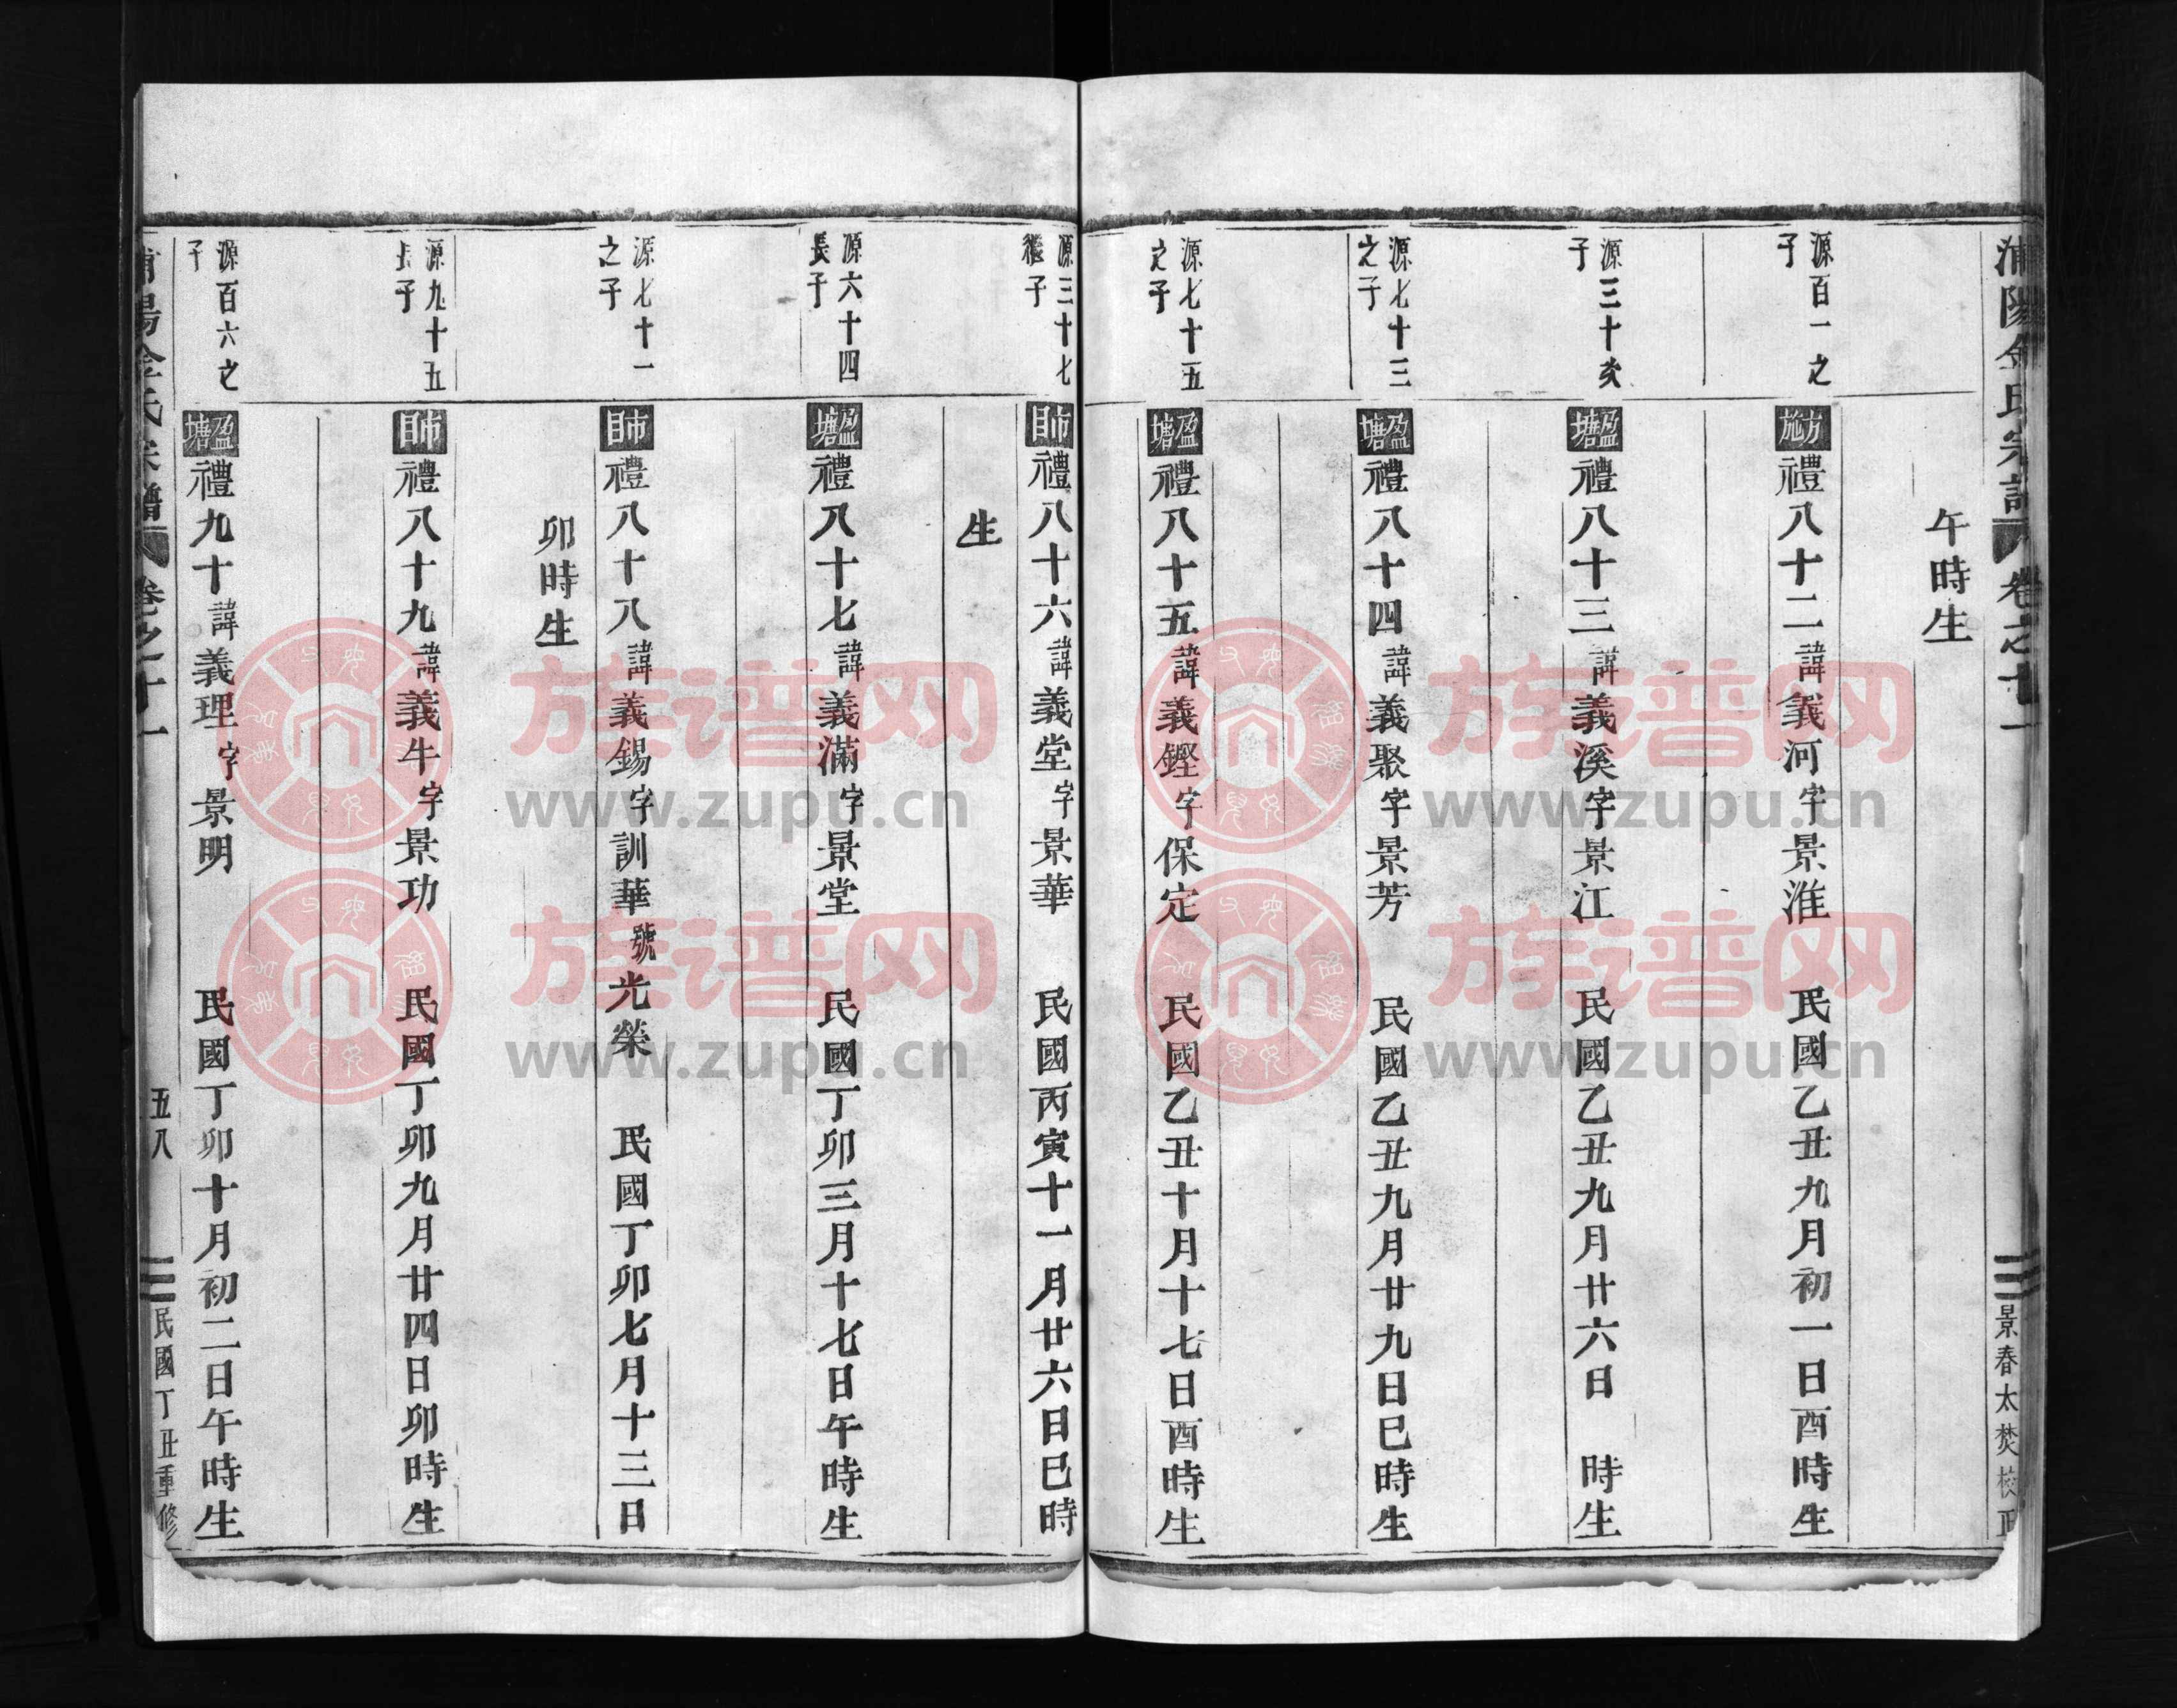 浦陽金氏宗譜
卷之十一
景春太焚校正
午時生
源百一之
子
方施
禮八十二諱義河字景淮 民國乙丑九月初一日酉時生
源三十六
子
盈塘
禮八十三諱義溪字景江 民國乙丑九月廿六日 時生
源七十三
之子
盈塘
禮八十四諱義聚字景芳 民國乙丑九月廿九日巳時生
源七十五
之子
盈塘
禮八十五諱義鏗字保定 民國乙丑十月十七日酉時生
源三十七
繼子
師
禮八十六諱義堂字景華 民國丙寅十一月廿六日巳時
生
源六十四
長子
盈塘
禮八十七諱義滿字景堂 民國丁卯三月十七日午時生
源七十一
之子
師
禮八十八諱義錫字訓華號光榮 民國丁卯七月十三日
卯時生
源九十五
長子
師
禮八十九諱義牛字景功 民國丁卯九月廿四日卯時生
源百六之
子
盈塘
禮九十諱義理字景明 民國丁卯十月初二日午時生
浦陽金氏宗譜
卷之十一
五八
民國丁丑重修
族谱网
www.zupu.cn
族谱网
www.zupu.cn
族谱网
www.zupu.cn
族谱网
www.zupu.cn